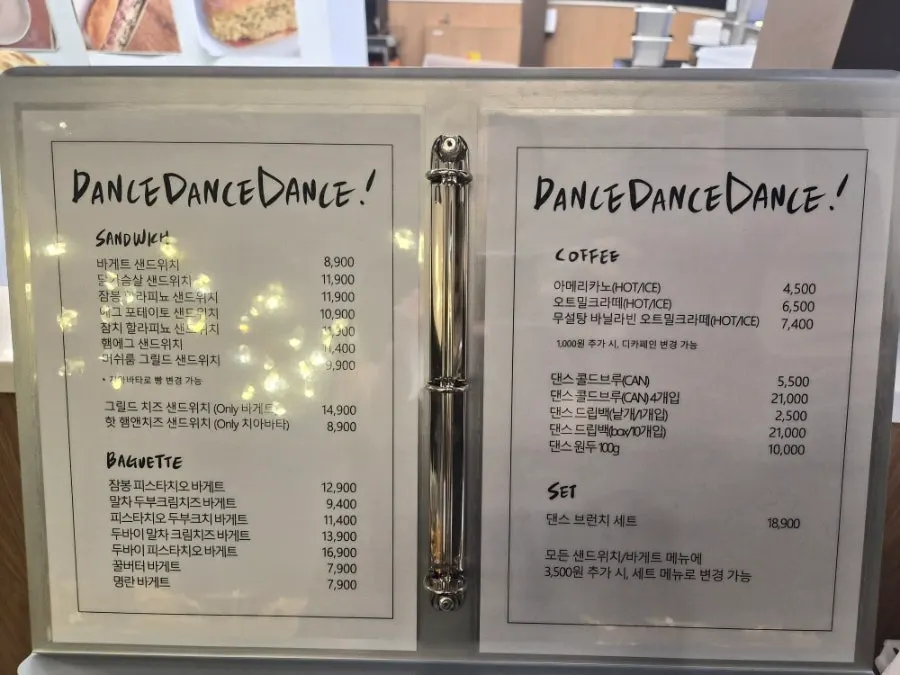 DANCEDANCEDANCE.!
SANDWICH
바게트 샌드위치 8,900
닭가슴살 샌드위치 11,900
잠봉 할라피뇨 샌드위치 11,900
에그 포테이토 샌드위치 10,900
참치 할라피뇨 샌드위치 11,900
햄에그 샌드위치 11,400
머쉬룸 그릴드 샌드위치 9,900
* 치아바타로 빵 변경 가능
그릴드 치즈 샌드위치 (Only 바게트) 14,900
핫 햄앤치즈 샌드위치 (Only 치아바타) 8,900
BAGUETTE
잠봉 피스타치오 바게트 12,900
말차 두부크림치즈 바게트 9,400
피스타치오 두부크치 바게트 11,400
두바이 말차 크림치즈 바게트 13,900
두바이 피스타치오 바게트 16,900
꿀버터 바게트 7,900
명란 바게트 7,900
DANCEDANCEDANCE.!
COFFEE
아메리카노(HOT/ICE) 4,500
오트밀크라떼(HOT/ICE) 6,500
무설탕 바닐라빈 오트밀크라떼(HOT/ICE) 7,400
1,000원 추가 시, 디카페인 변경 가능
댄스 콜드브루(CAN) 5,500
댄스 콜드브루(CAN) 4개입 21,000
댄스 드립백(낱개/1개입) 2,500
댄스 드립백(box/10개입) 21,000
댄스 원두 100g 10,000
SET
댄스 브런치 세트 18,900
모든 샌드위치/바게트 메뉴에
3,500원 추가 시, 세트 메뉴로 변경 가능